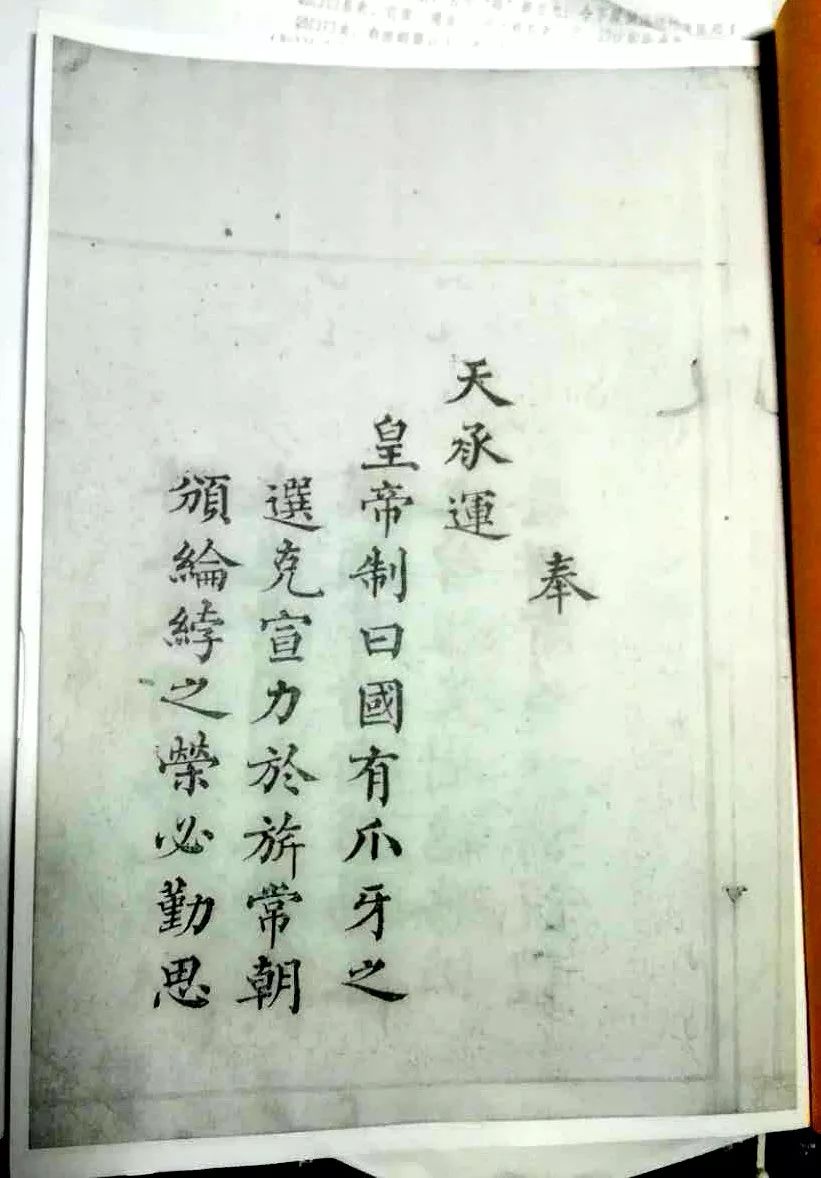 奉
天承運
皇帝制曰國有爪牙之
選克宣力於旂常朝
頒綸綍之榮必勤思